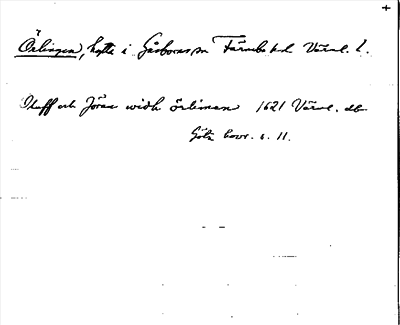 Örlingen, hytta i Gåsborns sn Färnebo hd Värml. l.
Oluff och Jöns widh örlinen 1621 Värml. db
Göta hovr. s. 11.